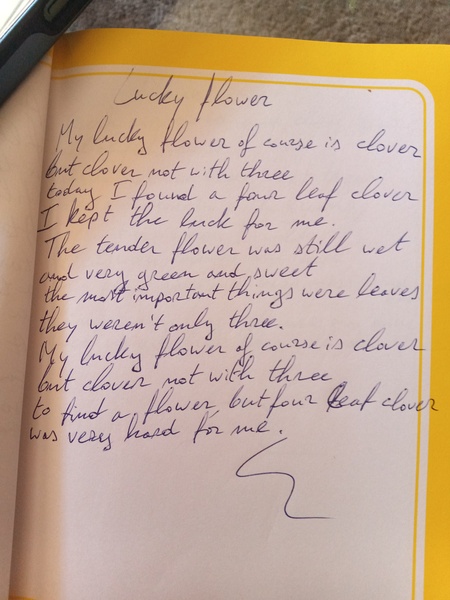 Lucky flower
My lucky flower of course is clover
but clover not with three
today I found a four leaf clover
I kept the luck for me.
The tender flower was still wet
and very green and sweet
the most important things were leaves
they weren't only three.
My lucky flower of course is clover
but clover not with three
to find a flower, but four leaf clover
was very hard for me.